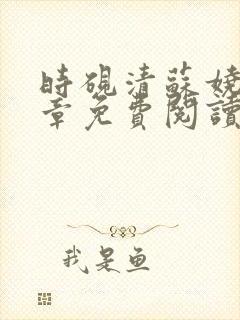 時硯清蘇嬈
章免費閱讀
我是魚